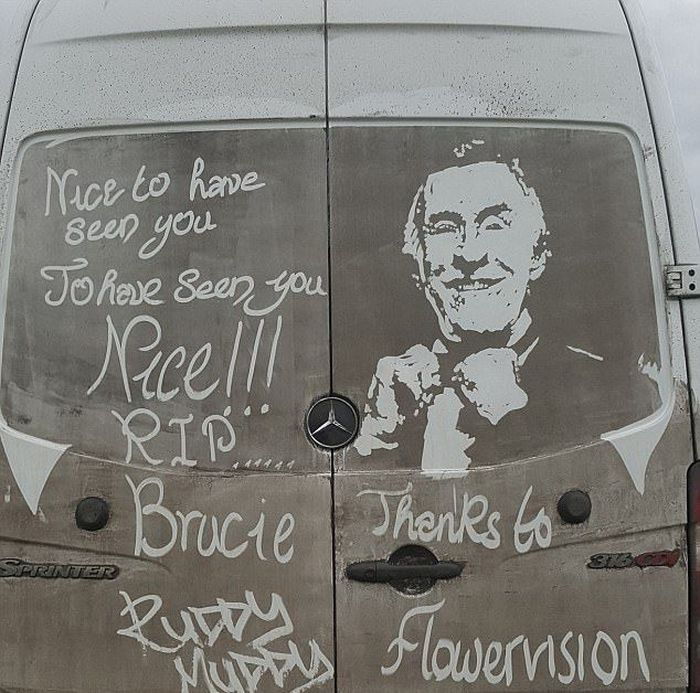 Nice to have
seen you
To have seen you
Nice!!!
RIP......
Brucie
Thanks to
SPRINTER
316 CDI
Ruddy
Muddy
Flowervision